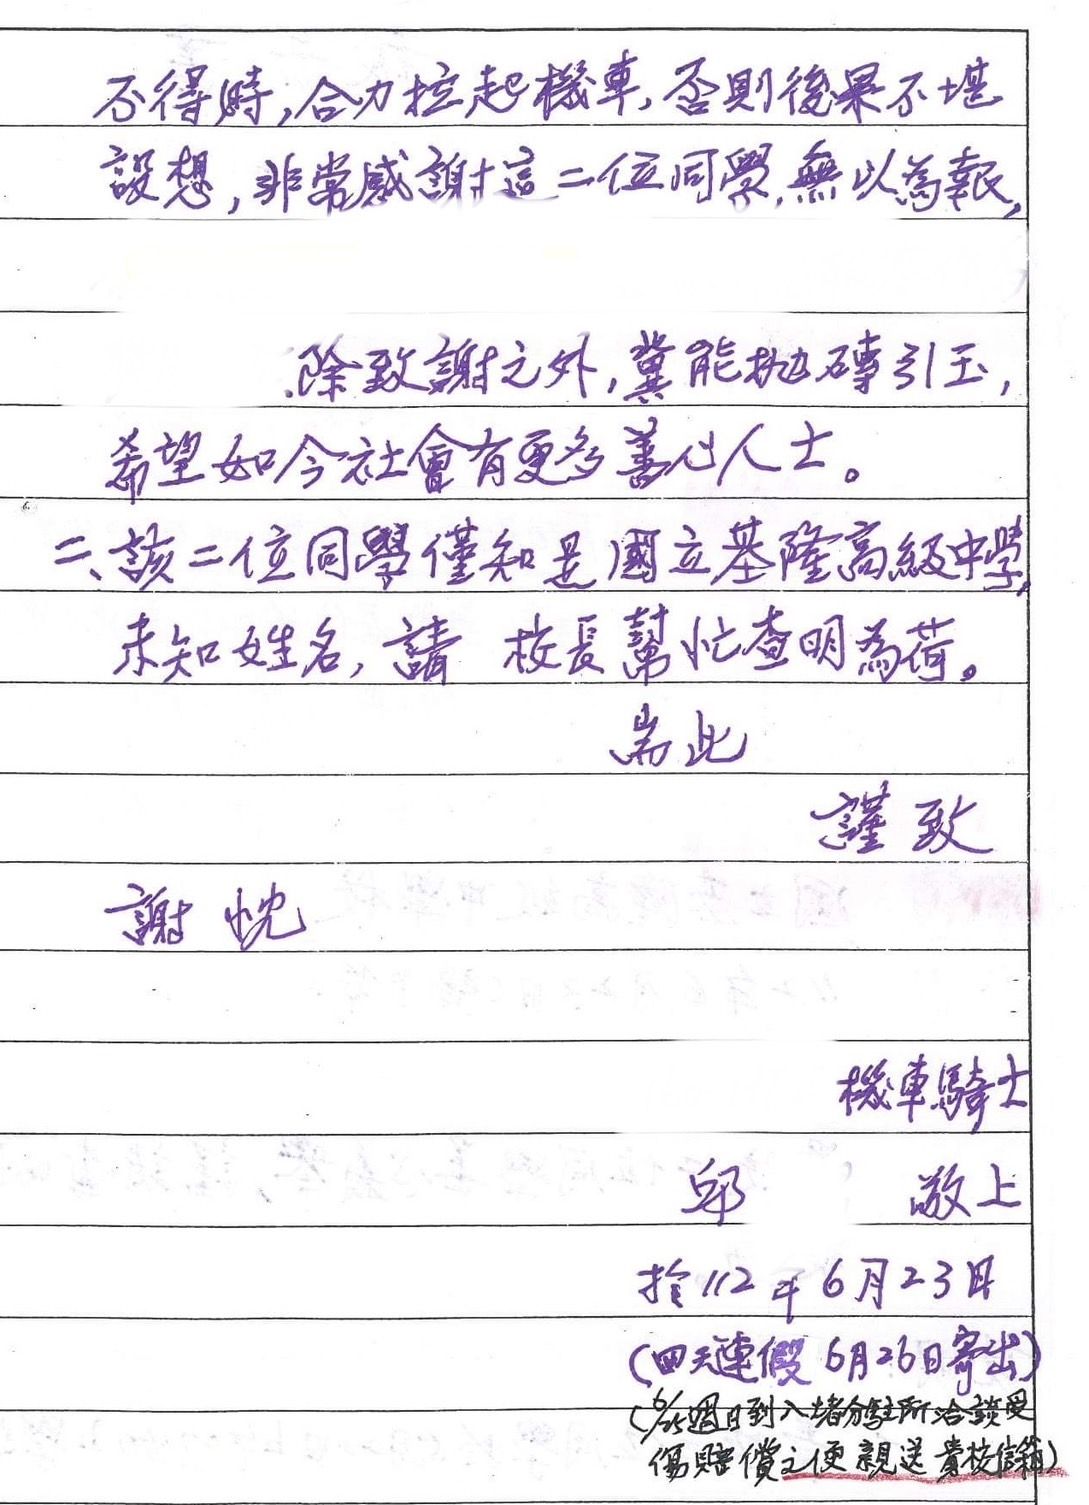 不得時,合力拉起機車,否則後果不堪
設想,非常感謝這二位同學,無以為報,
除致謝之外,冀能拋磚引玉,
希望如今社會有更多善心人士。
二、該二位同學僅知是國立基隆高級中學,
未知姓名,請 校長幫忙查明為荷。
耑此
謹致
謝忱
機車騎士
邱 敬上
於112年6月23日
(四天連假6月26日寄出)
(6/25週日到八堵分駐所洽談受
傷賠償之便親送貴校信箱)